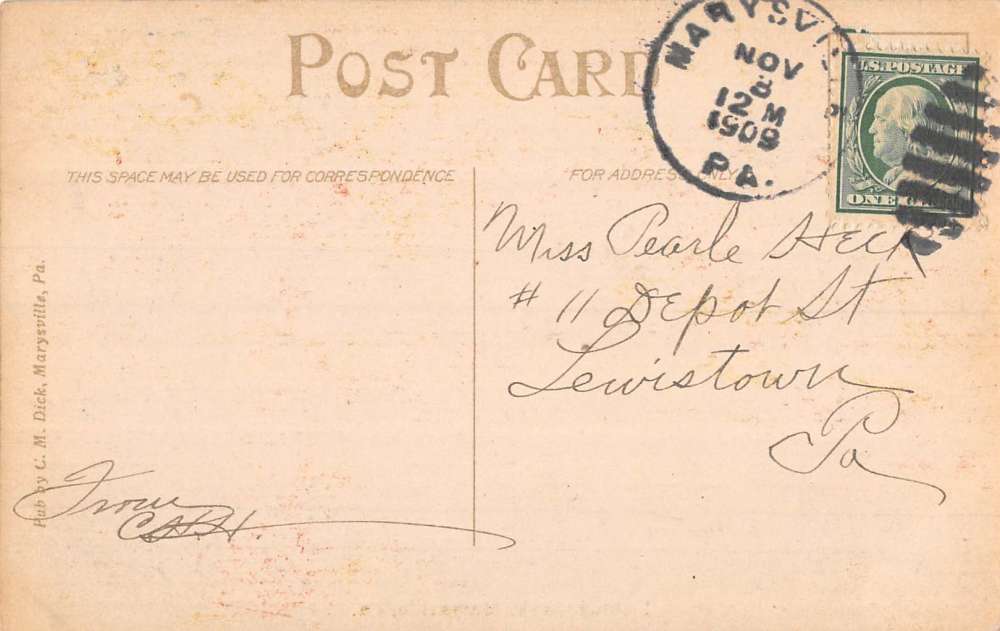 POST CARD
MARYSVI
NOV
8
12 M
1909
PA.
U.S. POSTAGE
ONE
THIS SPACE MAY BE USED FOR CORRESPONDENCE
FOR ADDRESS ONLY
Miss Pearle Heck
# 11 Depot St
Lewistown
Pa
Pub by C. M. Dick, Marysville, Pa.
From